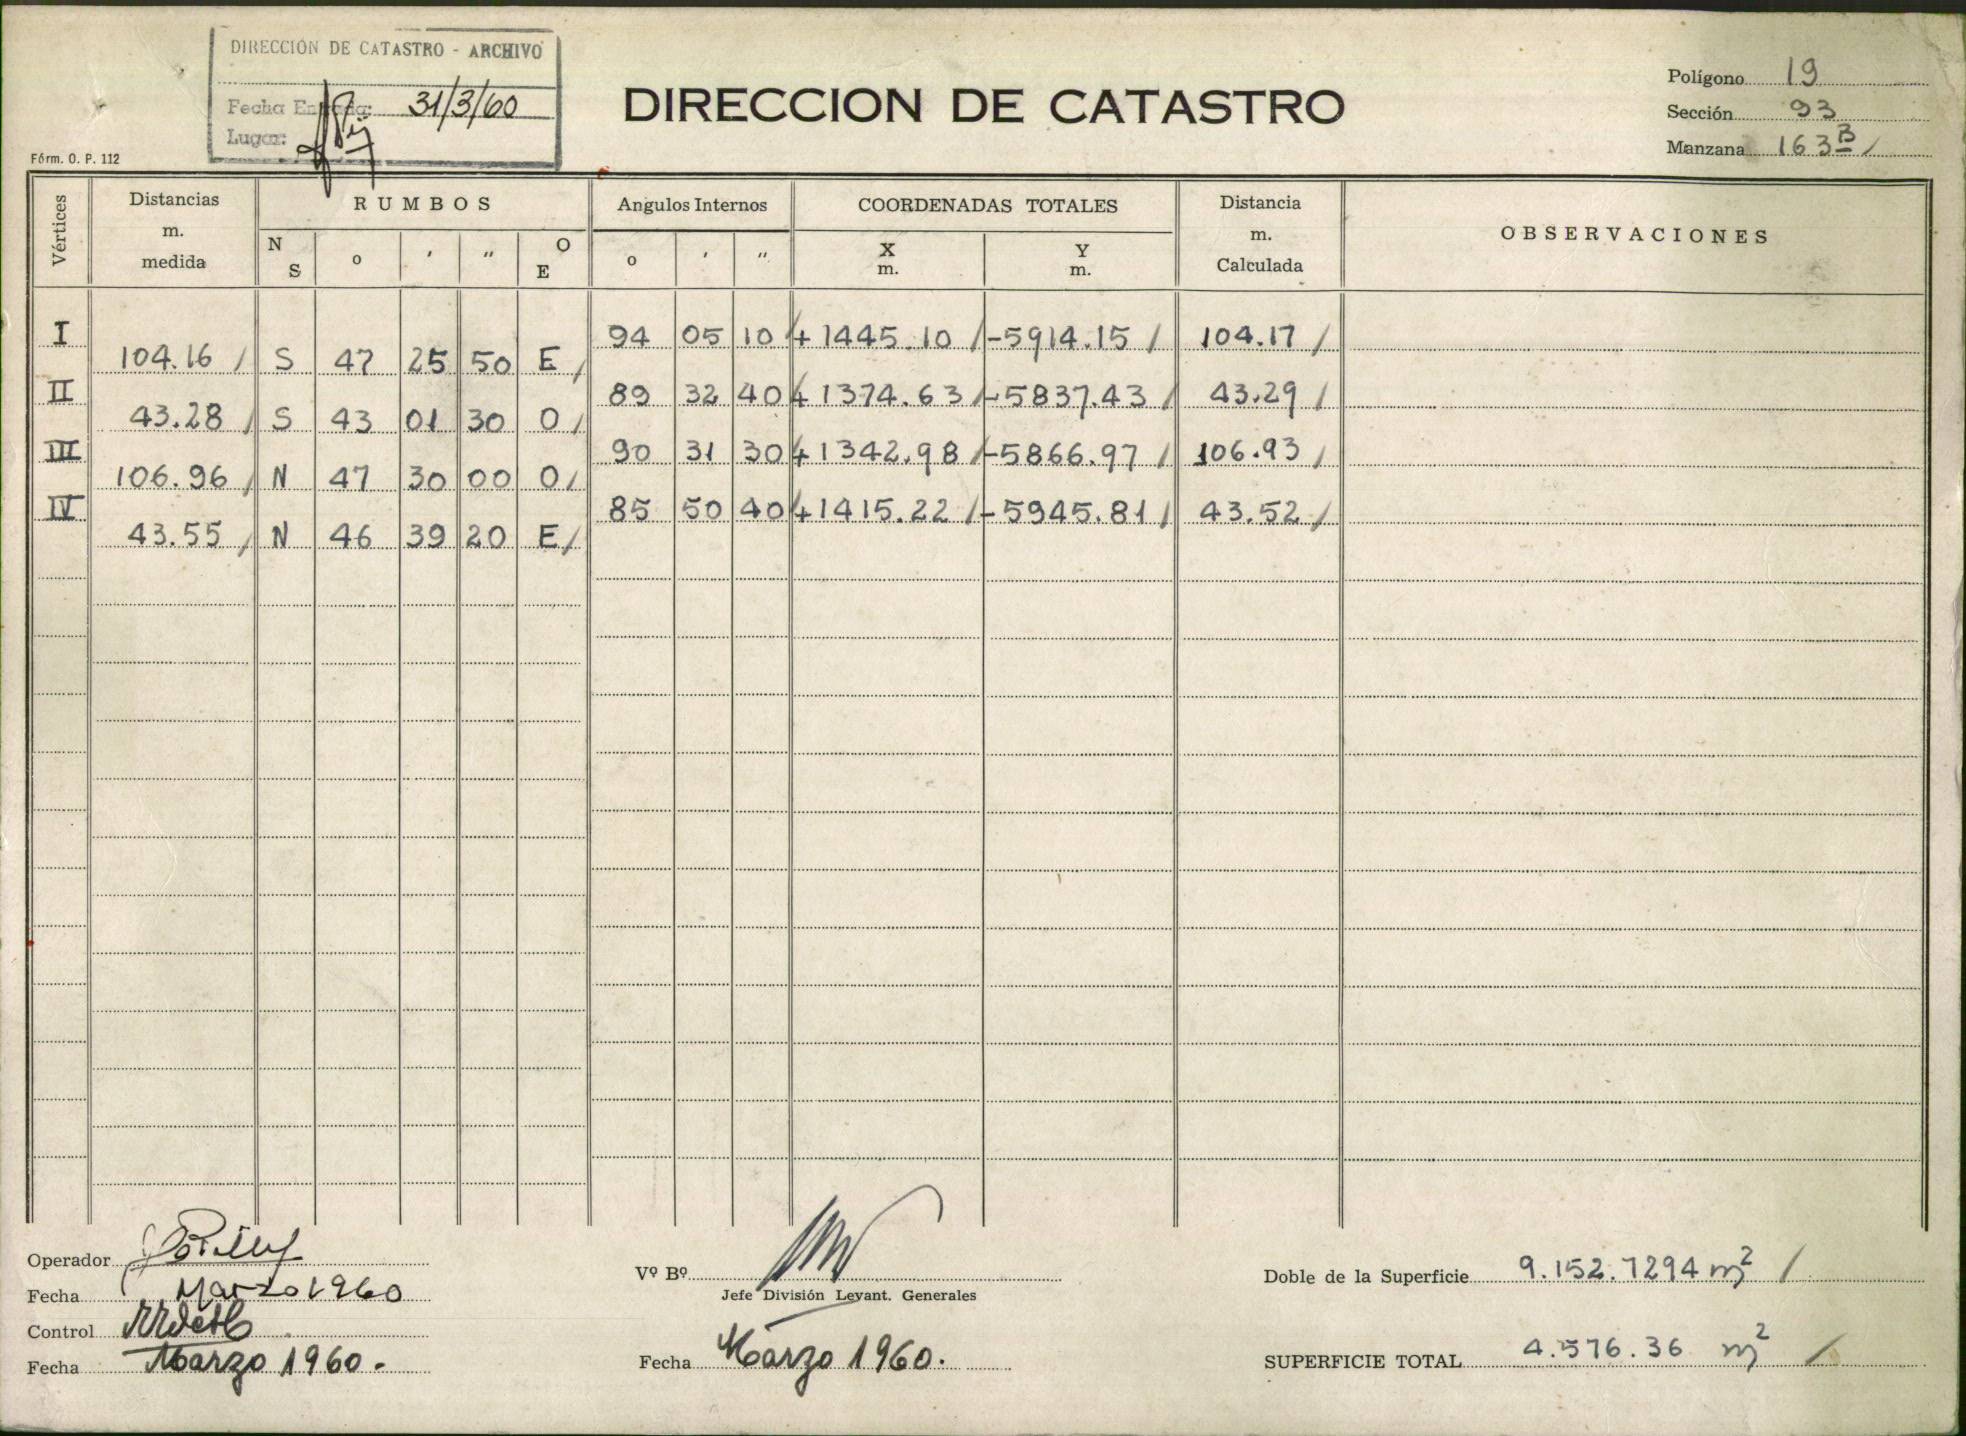 DIRECCIÓN DE CATASTRO - ARCHIVO
Fecha Entrada: 31/3/60
Lugar:
Fórm. O. P. 112
DIRECCION DE CATASTRO
Polígono 19
Sección 93
Manzana 163 B /
Vértices Distancias m. medida RUMBOS Angulos Internos COORDENADAS TOTALES Distancia m. Calculada OBSERVACIONES
N S o ' " O E o ' " X m. Y m.
I 94 05 10 + 1445.10 / -5914.15 / 104.17 /
104.16 / S 47 25 50 E /
II 89 32 40 + 1374.63 / -5837.43 / 43.29 /
43.28 / S 43 01 30 O /
III 90 31 30 + 1342.98 / -5866.97 / 106.93 /
106.96 / N 47 30 00 O /
IV 85 50 40 + 1415.22 / -5945.81 / 43.52 /
43.55 / N 46 39 20 E /
Operador
Fecha Marzo 1960
Control
Fecha Marzo 1960.
Vº Bº
Jefe División Levant. Generales
Fecha Marzo 1960.
Doble de la Superficie 9.152.7294 m² /
SUPERFICIE TOTAL 4.576.36 m² /